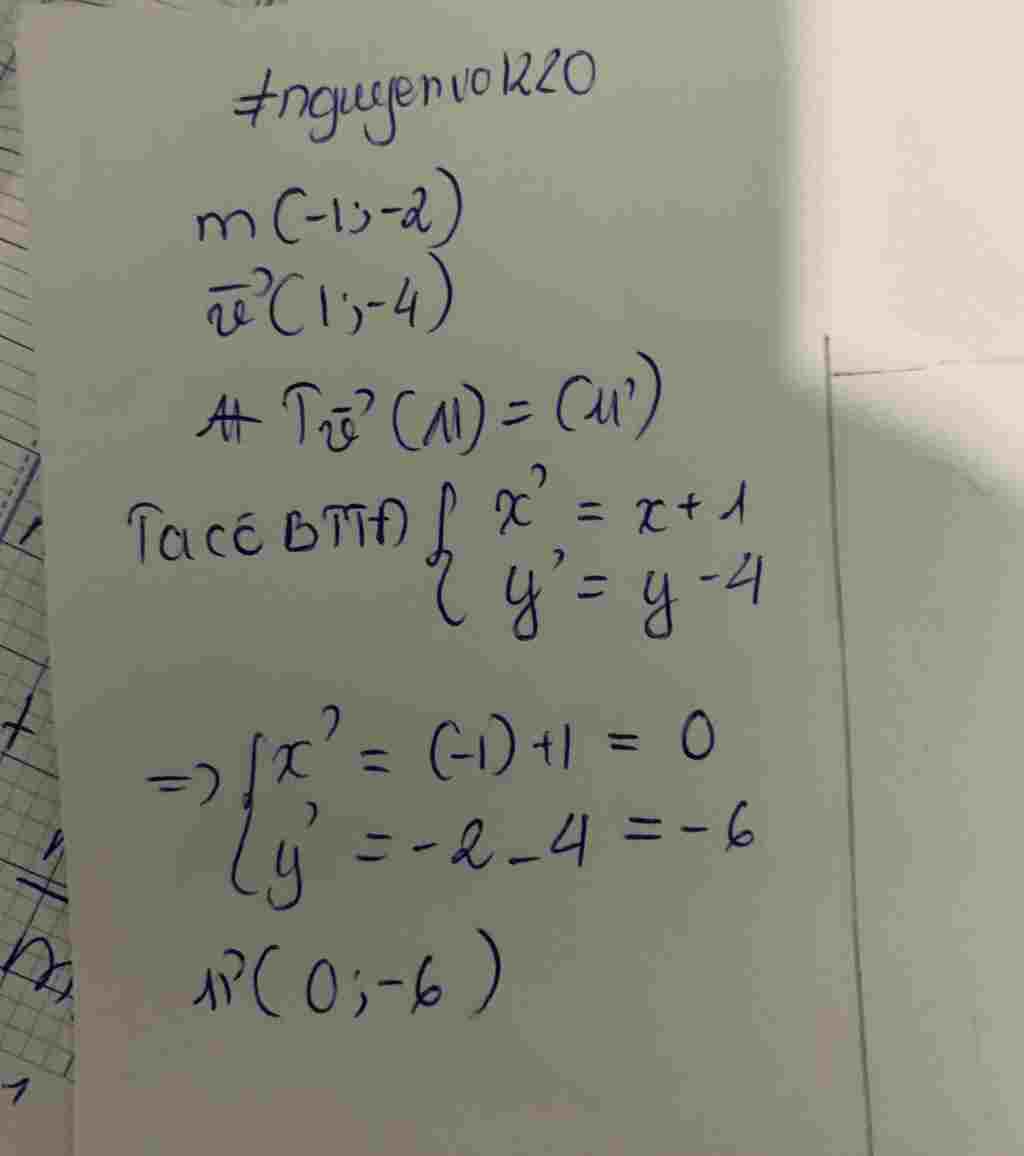 #nguyenvo1220
m(-1;-2)
v⃗(1;-4)
Tv⃗ (M) = (M')
Ta có BTTĐ { x' = x + 1
y' = y - 4
=> { x' = (-1) + 1 = 0
y' = -2 - 4 = -6
M'(0;-6)